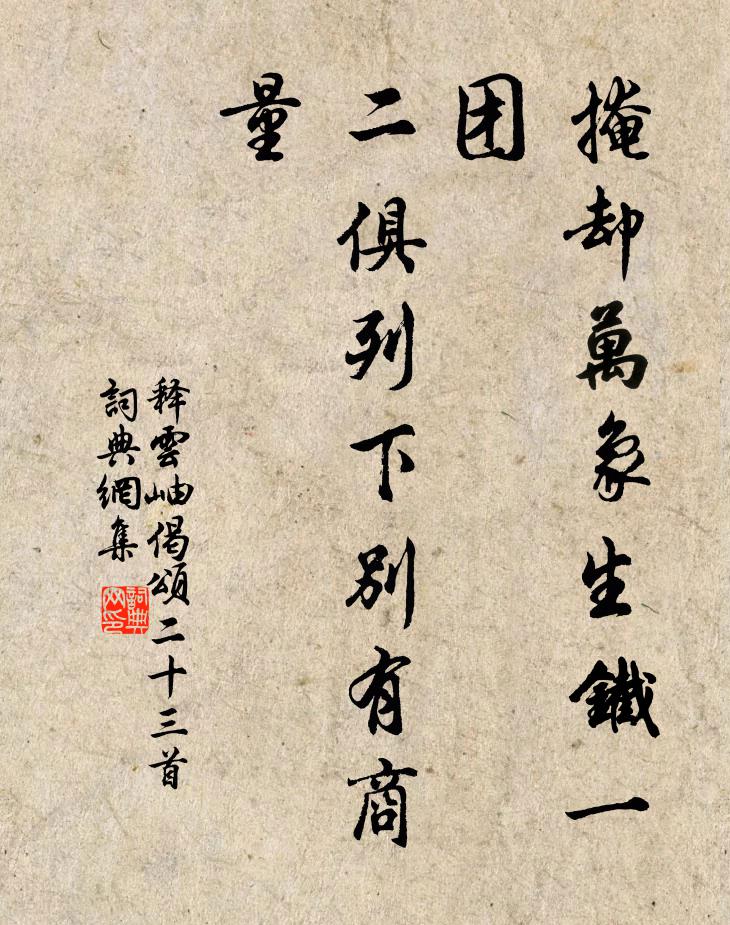 掩却萬象生鐵一
团
二俱列下別有商
量
释雲岫偈頌二十三首
詞典網集
詞典网印